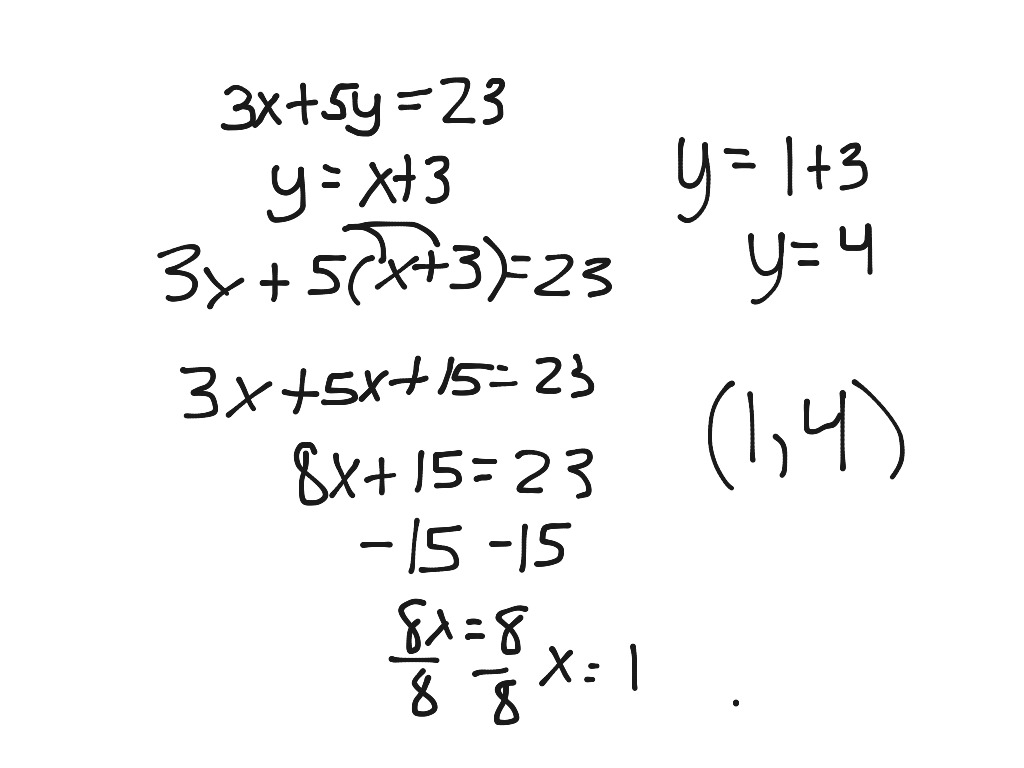 3x+5y=23
y=x+3
3x+5(x+3)=23
3x+5x+15=23
8x+15=23
-15 -15
8x=8
8 8
x=1
y=1+3
y=4
(1,4)